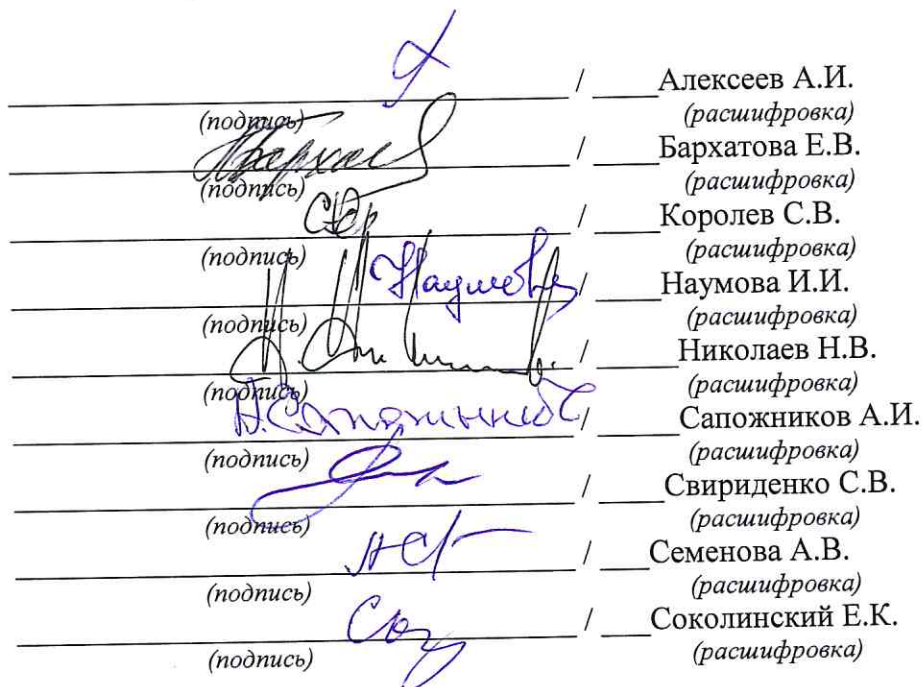 / Алексеев А.И.
(подпись) (расшифровка)
/ Бархатова Е.В.
(подпись) (расшифровка)
/ Королев С.В.
(подпись) (расшифровка)
Наумова / Наумова И.И.
(подпись) (расшифровка)
/ Николаев Н.В.
(подпись) (расшифровка)
А.Сапожников / Сапожников А.И.
(подпись) (расшифровка)
/ Свириденко С.В.
(подпись) (расшифровка)
/ Семенова А.В.
(подпись) (расшифровка)
/ Соколинский Е.К.
(подпись) (расшифровка)